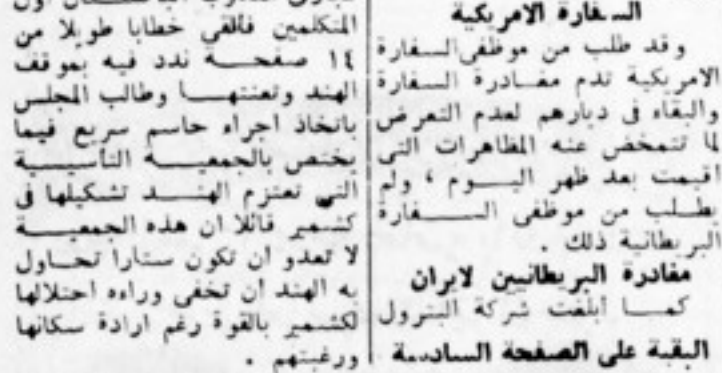 السفارة الامريكية
وقد طلب من موظفى السفارة
الامريكية تدم مغادرة السفارة
والبقاء فى ديارهم لعدم التعرض
لما تتمخض عنه المظاهرات التى
اقيمت بعد ظهر اليوم ، ولم
يطلب من موظفى السفارة
البريطانية ذلك .
مغادرة البريطانيين لايران
كما ابلغت شركة البترول
البقية على الصفحة السادسة
المتكلمين فألقى خطابا طويلا من
١٤ صفحة ندد فيه بموقف
الهند وتعنتها وطالب المجلس
باتخاذ اجراء حاسم سريع فيما
يختص بالجمعية التأسيسية
التى تعتزم الهند تشكيلها فى
كشمير قائلا ان هذه الجمعية
لا تعدو ان تكون ستارا تحاول
به الهند ان تخفى وراءه احتلالها
لكشمير بالقوة رغم ارادة سكانها
ورغبتهم .